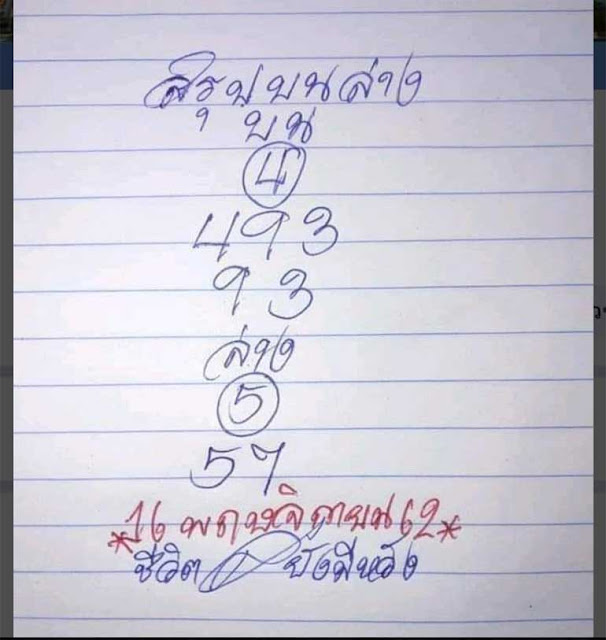 สรุปบนล่าง
บน
4
493
93
ล่าง
5
57
*16 พฤษจิกายน 62*
ชีวิต ยังมีหวัง